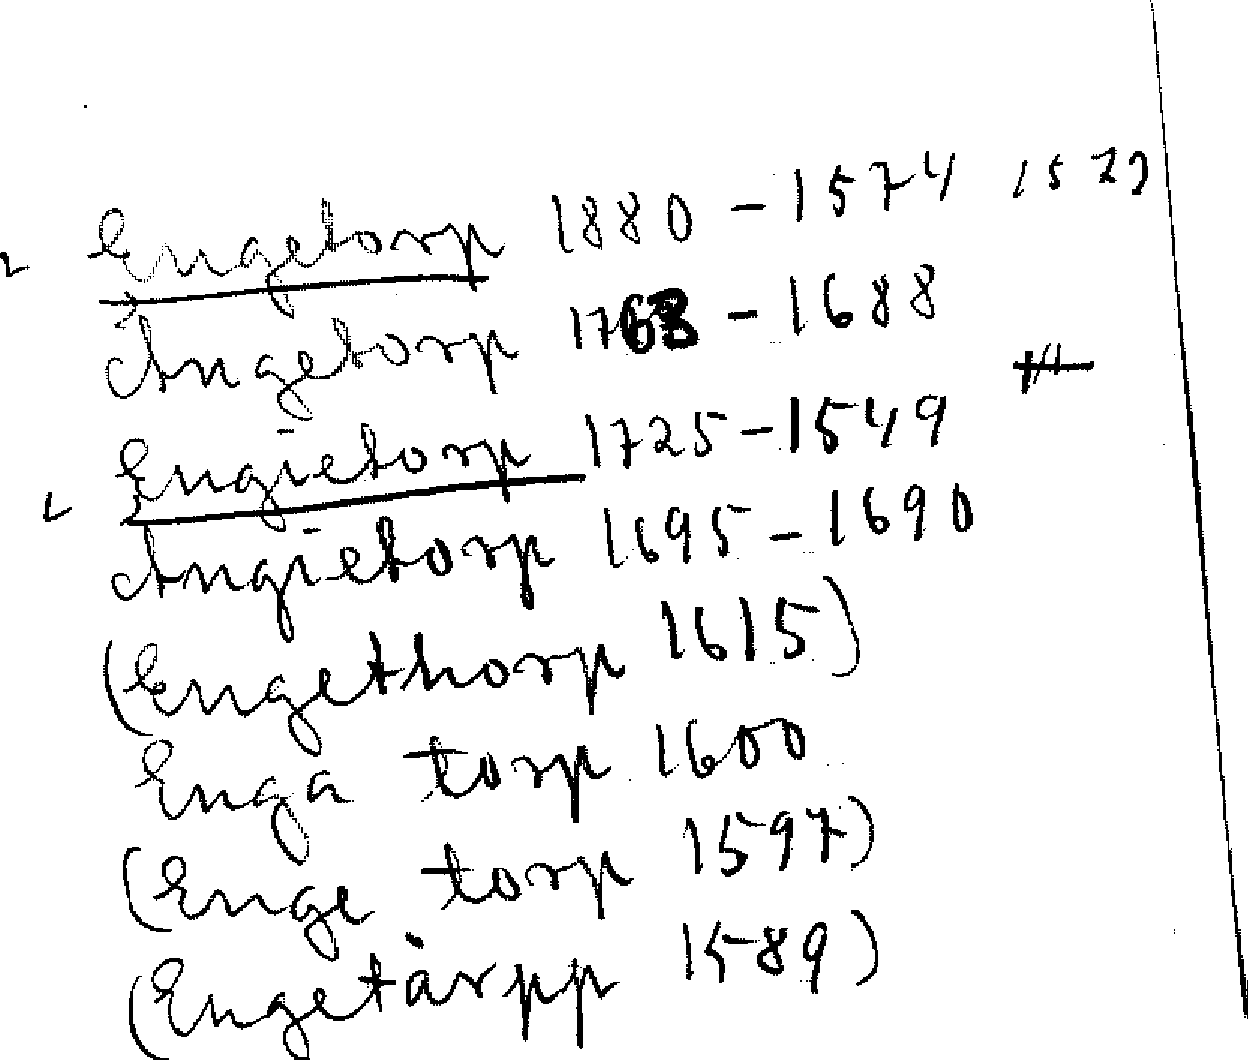 Engetorp 1880 – 1574 1573
Ängetorp 1763 – 1688
Engietorp 1725 – 1549
Ängietorp 1695 – 1690
(Engethorp 1615)
Enga torp 1600
(Enge torp 1597)
(Engetårpp 1589)